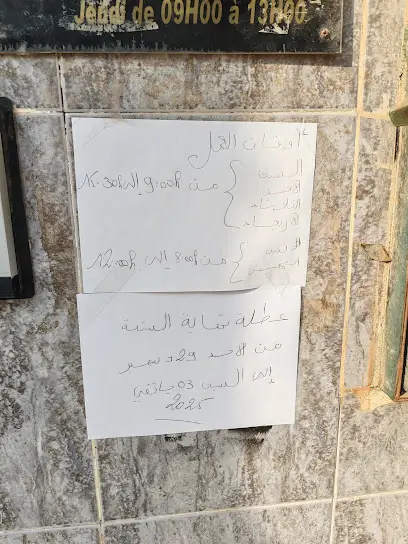 Jeudi de 09H00 à 13H00
أوقات العمل
السبت
الأحد
الثلاثاء
الأربعاء
من 9:00h إلى 15:30h
الاثنين
الخميس
من 8:00h إلى 12:00h
عطلة نهاية السنة
من الأحد 29 ديسمبر
إلى السبت 03 جانفي
2025